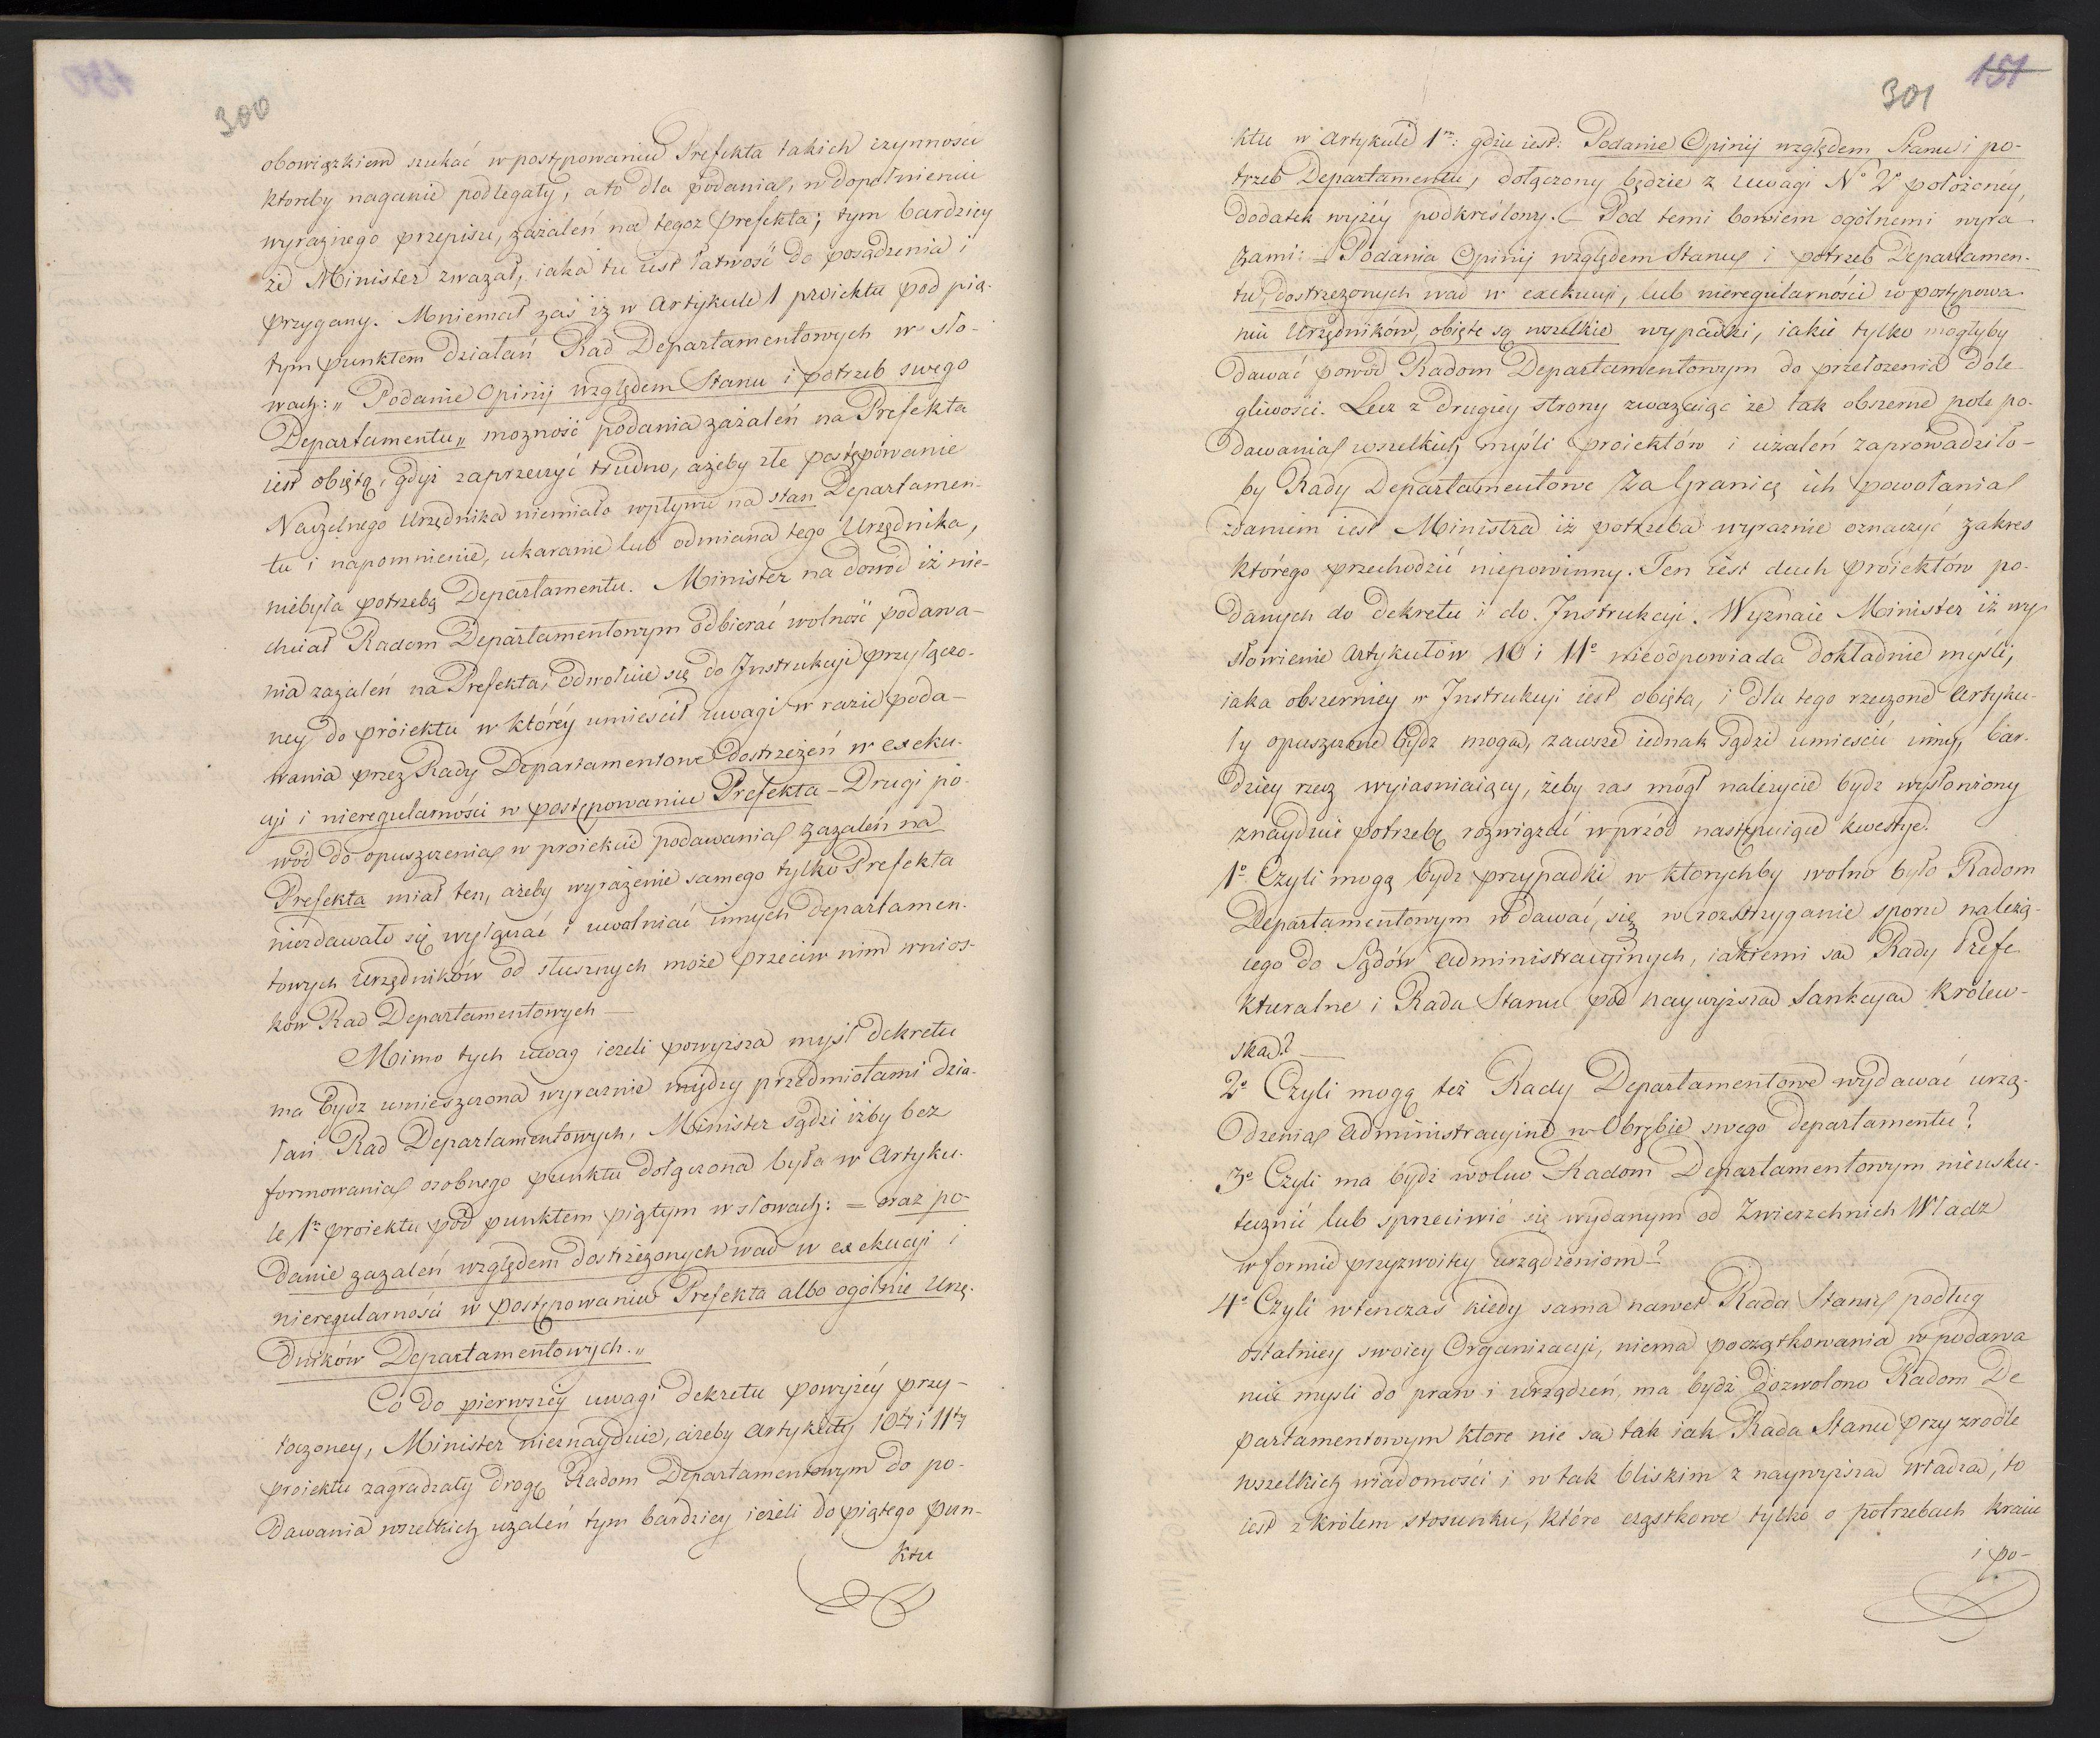 300
obowiązkiem szukać w postępowaniu Prefekta takich czynności
ktoreby naganie podlegały, a to dla podania, w dopełnieniu
wyraznego przepisu, zażaleń na tegoz Prefekta; tym bardziey
że Minister zwazał, iaka tu iest łatwość do posądzenia i
przygany. Mniemał zaś iż w Artykule 1 proiektu pod pią-
tym punktem Działań Rad Departamentowych w sło-
wach: „Podanie Opinij względem Stanu i potrzeb swego
Departamentu„ mozność podania zażaleń na Prefekta
iest obiętą, gdyż zaprzeczyć trudno, ażeby złe postępowanie
Naczelnego Urzędnika niemiało wpływu na stan Departamen-
tu i napomnienie, ukaranie lub odmiana tego Urzędnika,
niebyła potrzebą Departamentu. Minister na dowód iż nie-
chciał Radom Departamentowym odbierać wolność podawa-
nia zażaleń na Prefekta, odwołuie się do Instrukcji przyłączo-
ney do proiektu w którey umieścił uwagi w razie poda-
wania przez Rady Departamentowe Dostrzeżeń w exeku-
cji i nieregularności w postępowaniu Prefekta – Drugi po-
wód do opuszczenia w proiekcie podawania Zazaleń na
Prefekta miał ten, ażeby wyrażenie samego tylko Prefekta
niezdawało się wyłączać i uwalniać innych Departamen-
towych Urzędników od słusznych może przeciw nim wnios-
ków Rad Departamentowych —
Mimo tych uwag ieżeli powyższa myśl dekretu
ma bydz umieszczona wyraznie między przedmiotami dzia-
łań Rad Departamentowych, Minister sądzi iżby bez
formowania osobnego punktu dołączona była w Artyku-
le 1m proiektu pod punktem piątym w słowach: = oraz po-
danie zazaleń względem dostrzezonych wad w exekucji i
nieregularności w postępowaniu Prefekta albo ogólnie Urzę-
dników Departamentowych.„
Co do pierwszey uwagi dekretu powyżey przy-
toczoney, Minister nieznayduie, ażeby Artykuły 10ty i 11ty
proiektu zagradzały drogę Radom Departamentowym do po-
dawania wszelkich uzaleń tym bardziey ieżeli do piątego pun-
ktu
151
301
ktu w Artykule 1m: gdzie iest: Podanie Opinij względem Stanu i po-
trzeb Departamentu, dołączony będzie z uwagi No 2o położoney,
dodatek wyżey podkreślony. – Pod temi bowiem ogólnemi wyra-
zami: Podania Opinij względem Stanu i potrzeb Departamen-
tu, dostrzezonych wad w exekucji, lub nieregularności w postępowa-
niu Urzędników, obięte są wszelkie wypadki, iakie tylko mogłyby
dawać powód Radom Departamentowym do przełozenia dole-
gliwości. Lecz z drugiey strony zwazaiąc że tak obszerne pole po-
dawania wszelkich myśli proiektów i uzaleń zaprowadziło-
by Rady Departamentowe za Granicę ich powołania
zdaniem iest Ministra iż potrzeba wyraznie oznaczyć zakres
którego przechodzić niepowinny. Ten iest duch proiektów po-
danych do dekretu i do Instrukcji. Wyznaie Minister iż wy-
słowienie Artykułów 10 i 11o nieodpowiada dokładnie myśli,
iaka obszerniey w Instrukcji iest obięta, i dla tego rzeczone Artyku-
ły opuszczone bydz mogą, zawsze iednak sądzi umieścić inny, bar-
dziey rzecz wyiasniaiący, żeby zas mógł nalezycie bydz wysłowiony
znayduie potrzebę rozwiązać wprzód następuiące kwestye.
1o Czyli mogą bydz przypadki w ktorychby wolno było Radom
Departamentowym wdawać się w rozstrzyganie sporu należą-
cego do Sądów Administracyinych, iakiemi są Rady Prefe-
kturalne i Rada Stanu pod naywyższą Sankcyą Królew-
ską? —
2o Czyli mogą też Rady Departamentowe wydawać urzą-
dzenia Administracyine w Obrębie swego Departamentu?
3o Czyli ma bydź wolno Radom Departamentowym nieusku-
tecznić lub sprzeciwić się wydanym od Zwierzchnich Władz
w formie przyzwoitey urządzeniom?
4o Czyli wtenczas kiedy sama nawet Rada Stanu podług
ostatniey swoiey Organizacji, niema początkowania w podawa-
niu mysli do praw i urządzeń, ma bydź dozwolono Radom De-
partamentowym ktore nie są tak iak Rada Stanu przy zrodle
wszelkich wiadomości i w tak bliskim z naywyższą władzą, to
iest z Królem stosunku, które cząstkowe tylko o potrzebach kraiu
i po-